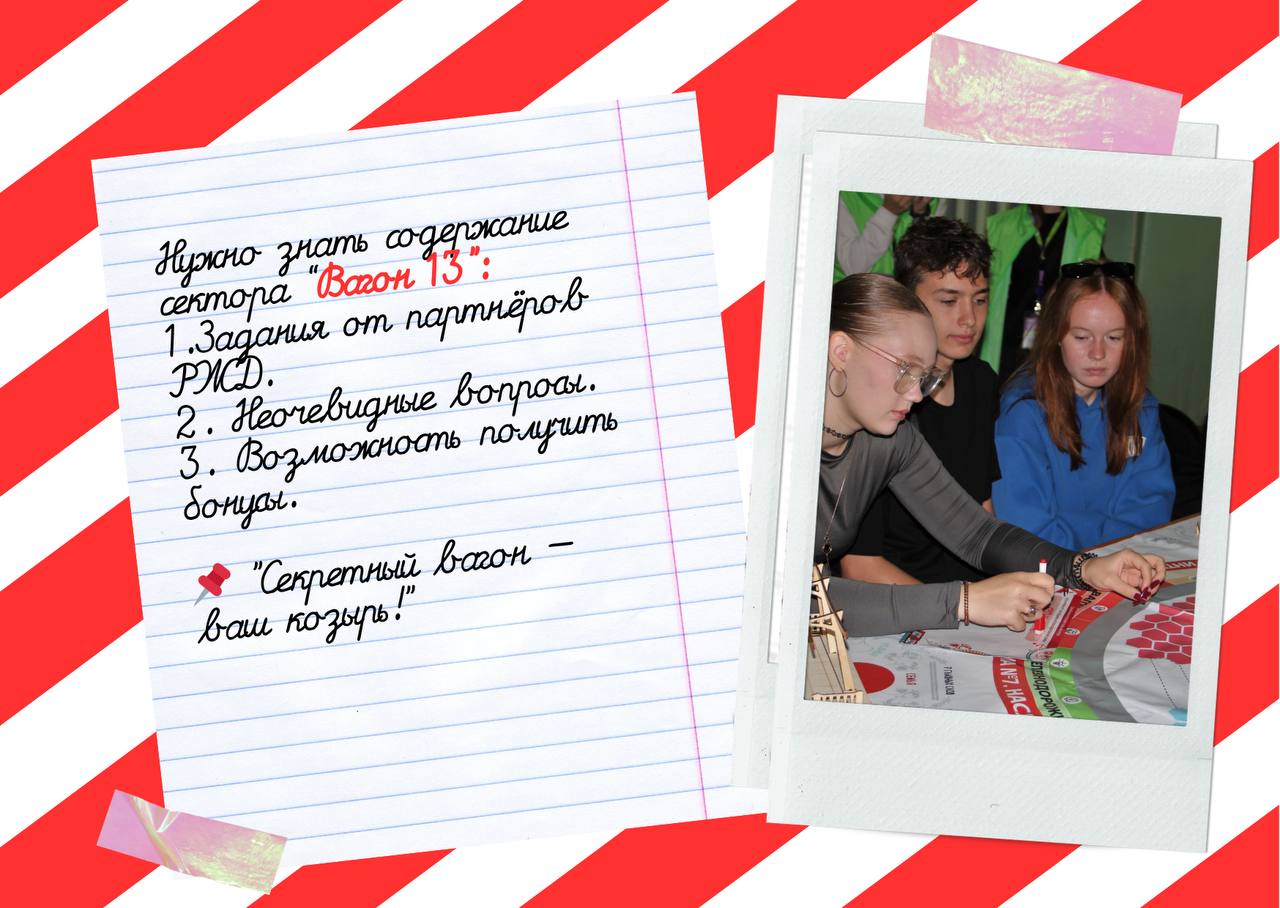 Нужно знать содержание
сектора "Вагон 13":
1.Задания от партнёров
РЖД.
2. Неочевидные вопросы.
3. Возможность получить
бонусы.
"Секретный вагон —
ваш козырь!"